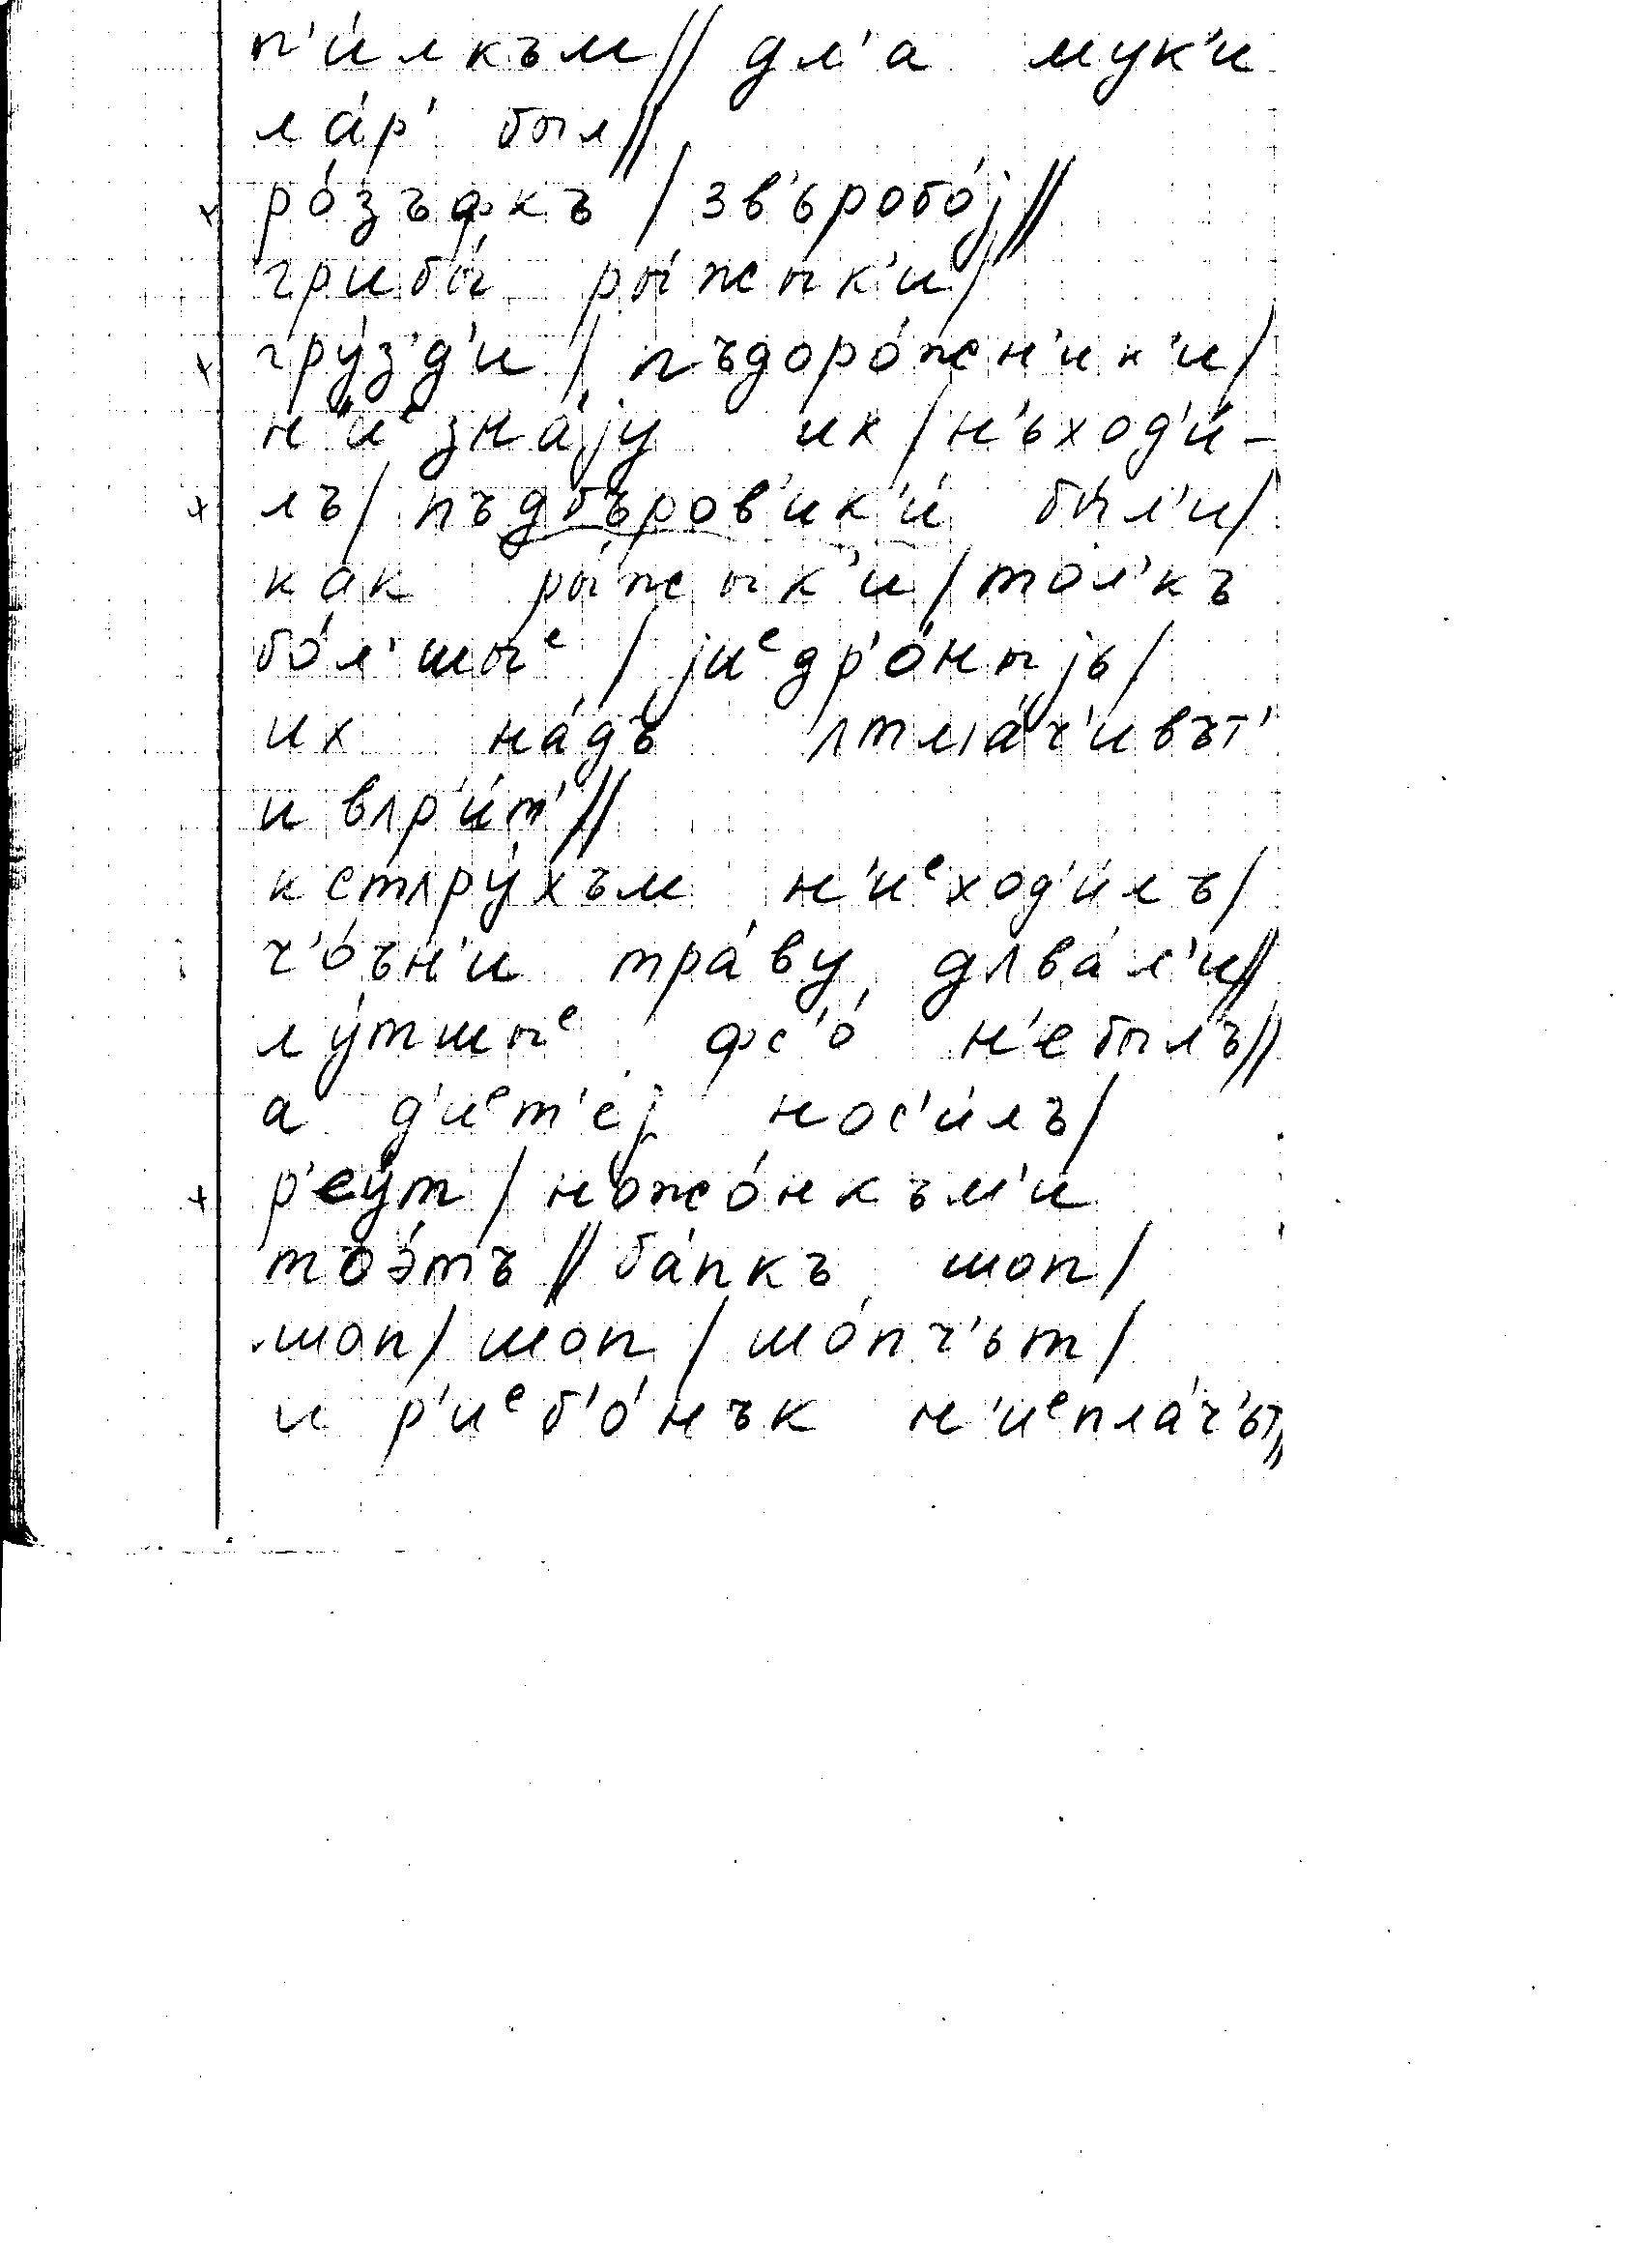 п'и́лкъм // дл'а мук'и
ла́р' был //
х ро́зъфкъ / зв'ьробо́j //
грибы́ ры́жык'и /
х гру́з'д'и / пъдоро́жн'ик'и /
н'иᵉзна́jу их / н'ьход'и́-
х лъ / пъдбъров'ик'и́ бы́л'и /
как ры́жык'и / тол'къ
бо́л'шыᵉ / jиᵉдр'о́ныjь /
их на́дъ ʌтма́ч'ивът'
и вʌр'и́т' //
к стʌру́хъм н'иᵉход'и́лъ /
ч'о́ън'и тра́ву дʌва́л'и //
лу́тшыᵉ фс'о́ н'е былъ //
а д'иᵉт'е́j нос'и́лъ /
х р'еу́т / ножо́нкъм'и
тоэ́тъ // ба́пкъ шоп /
шоп / шоп / шо́пч'ьт /
и р'иᵉб'о́нък н'иᵉпла́ч'ьт //